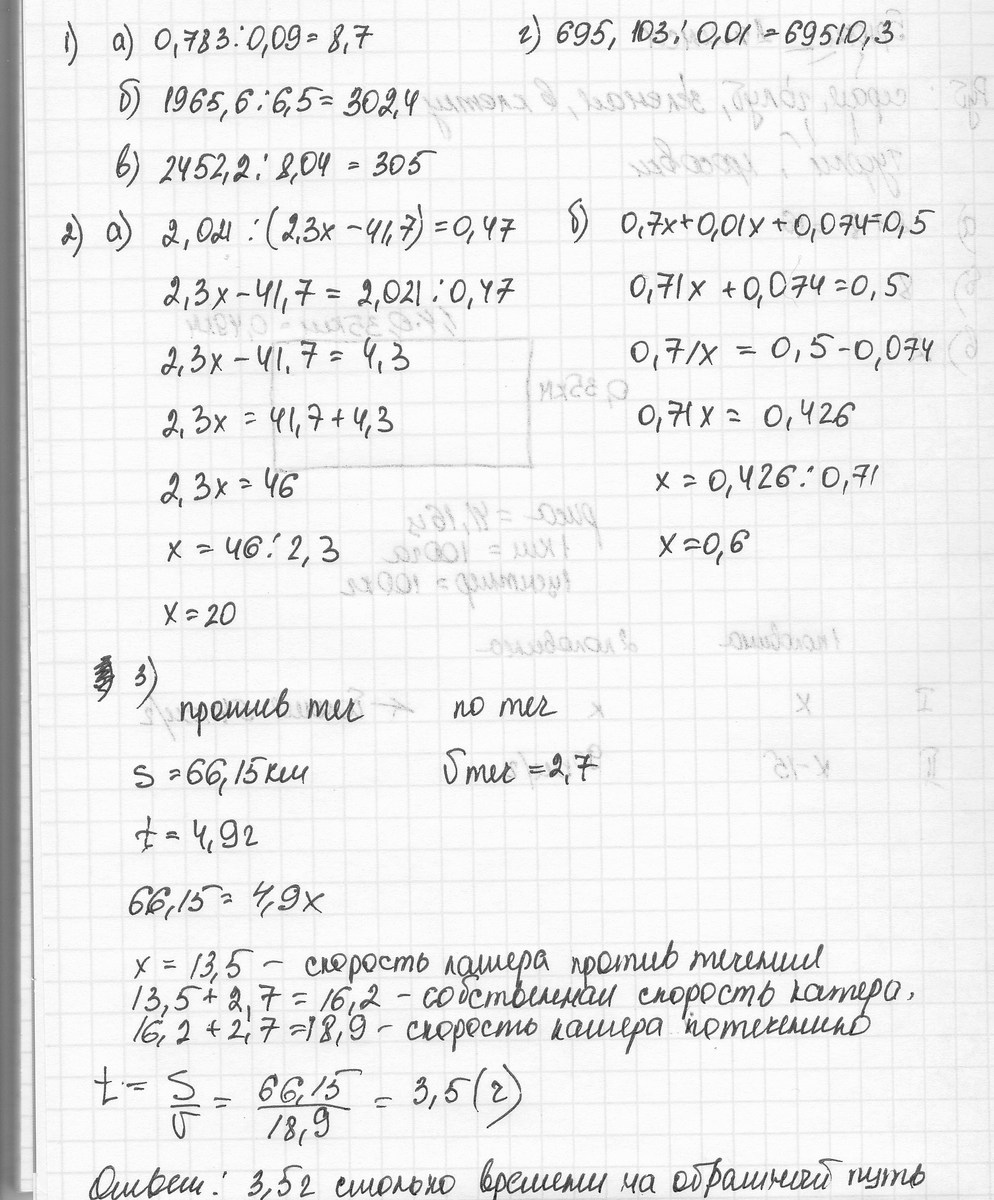 1) а) 0,783:0,09=8,7 г) 695,103:0,01=69510,3
б) 1965,6:6,5=302,4
в) 2452,2:8,04=305
2) а) 2,021:(2,3х-41,7)=0,47 б) 0,7х+0,01х+0,074=0,5
2,3х-41,7=2,021:0,47 0,71х+0,074=0,5
2,3х-41,7=4,3 0,71х=0,5-0,074
2,3х=41,7+4,3 0,71х=0,426
2,3х=46 х=0,426:0,71
х=46:2,3 х=0,6
х=20
3)
против теч по теч
S=66,15км υтеч=2,7
t=4,9г
66,15=4,9х
х=13,5 - скорость катера против течения
13,5+2,7=16,2 - собственная скорость катера.
16,2+2,7=18,9 - скорость катера по течению
t = S/υ = 66,15/18,9 = 3,5(г)
Ответ: 3,5г столько времени на обратный путь